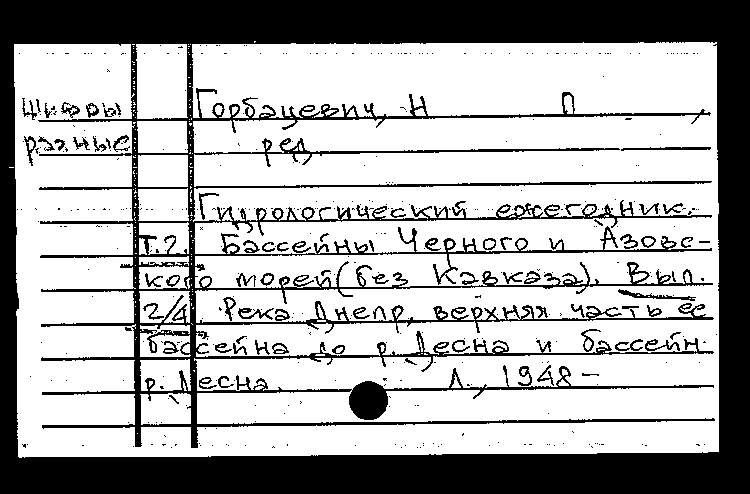 Шифры Горбацевич, Н П ,
разные ред.
Гидрологический ежегодник.
Т.2. Бассейны Черного и Азовс-
кого морей (без Кавказа). Вып.
2/4. Река Днепр, верхняя часть ее
бассейна до р. Десна и бассейн
р. Десна. Л., 1948 –